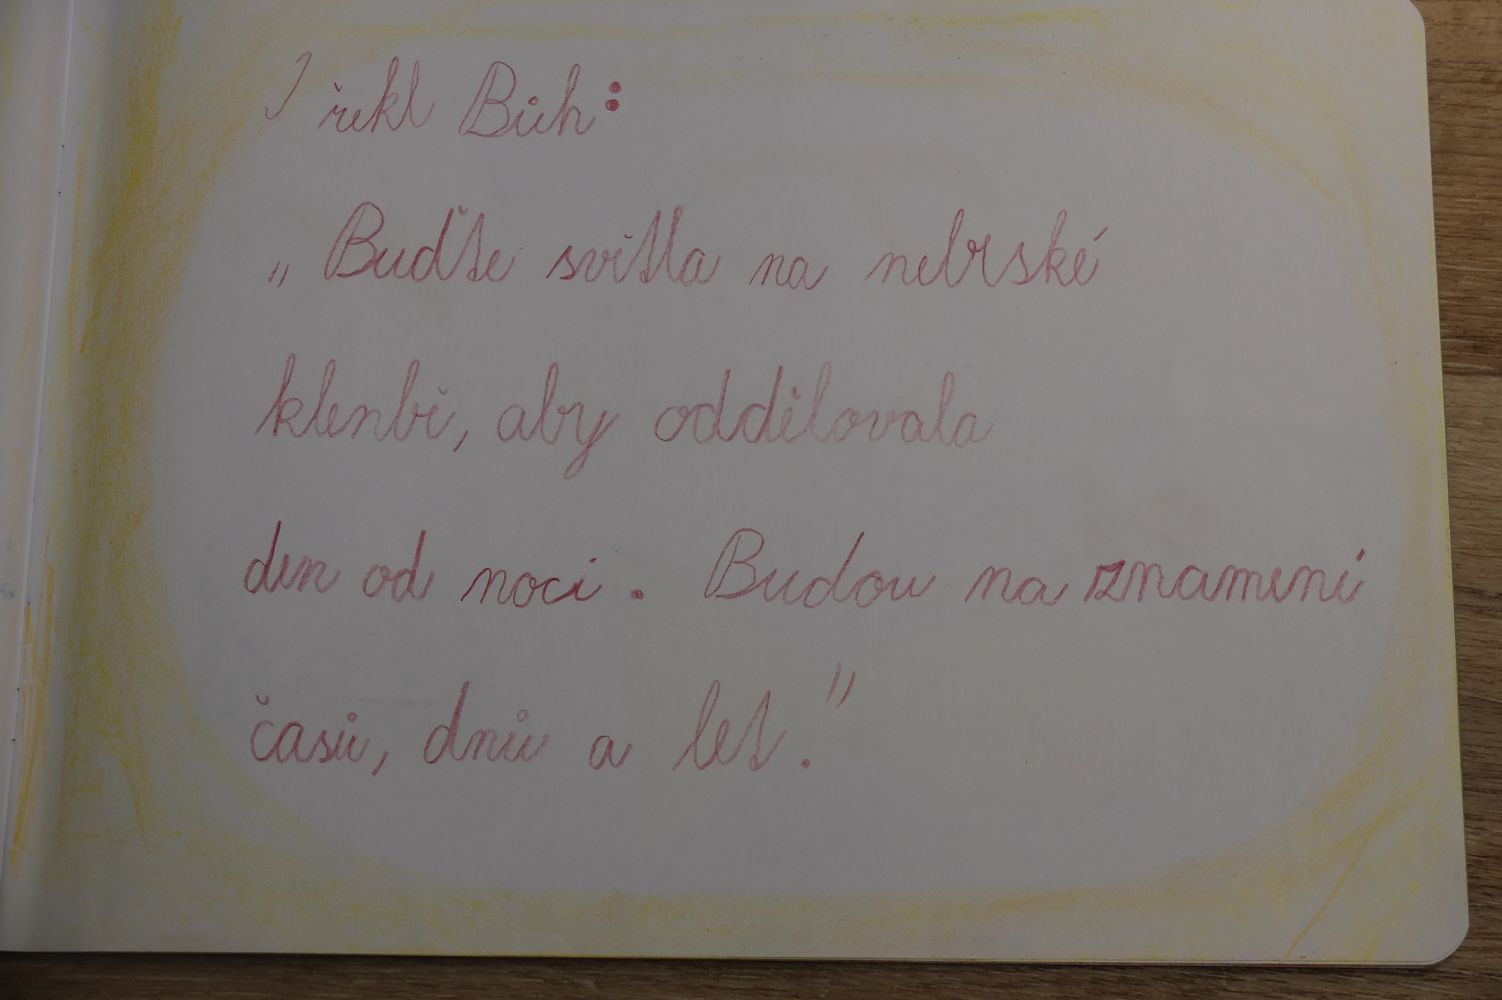 I řekl Bůh:
„Buďte světla na nebeské
klenbě, aby oddělovala
den od noci. Budou na znamení
časů, dnů a let."